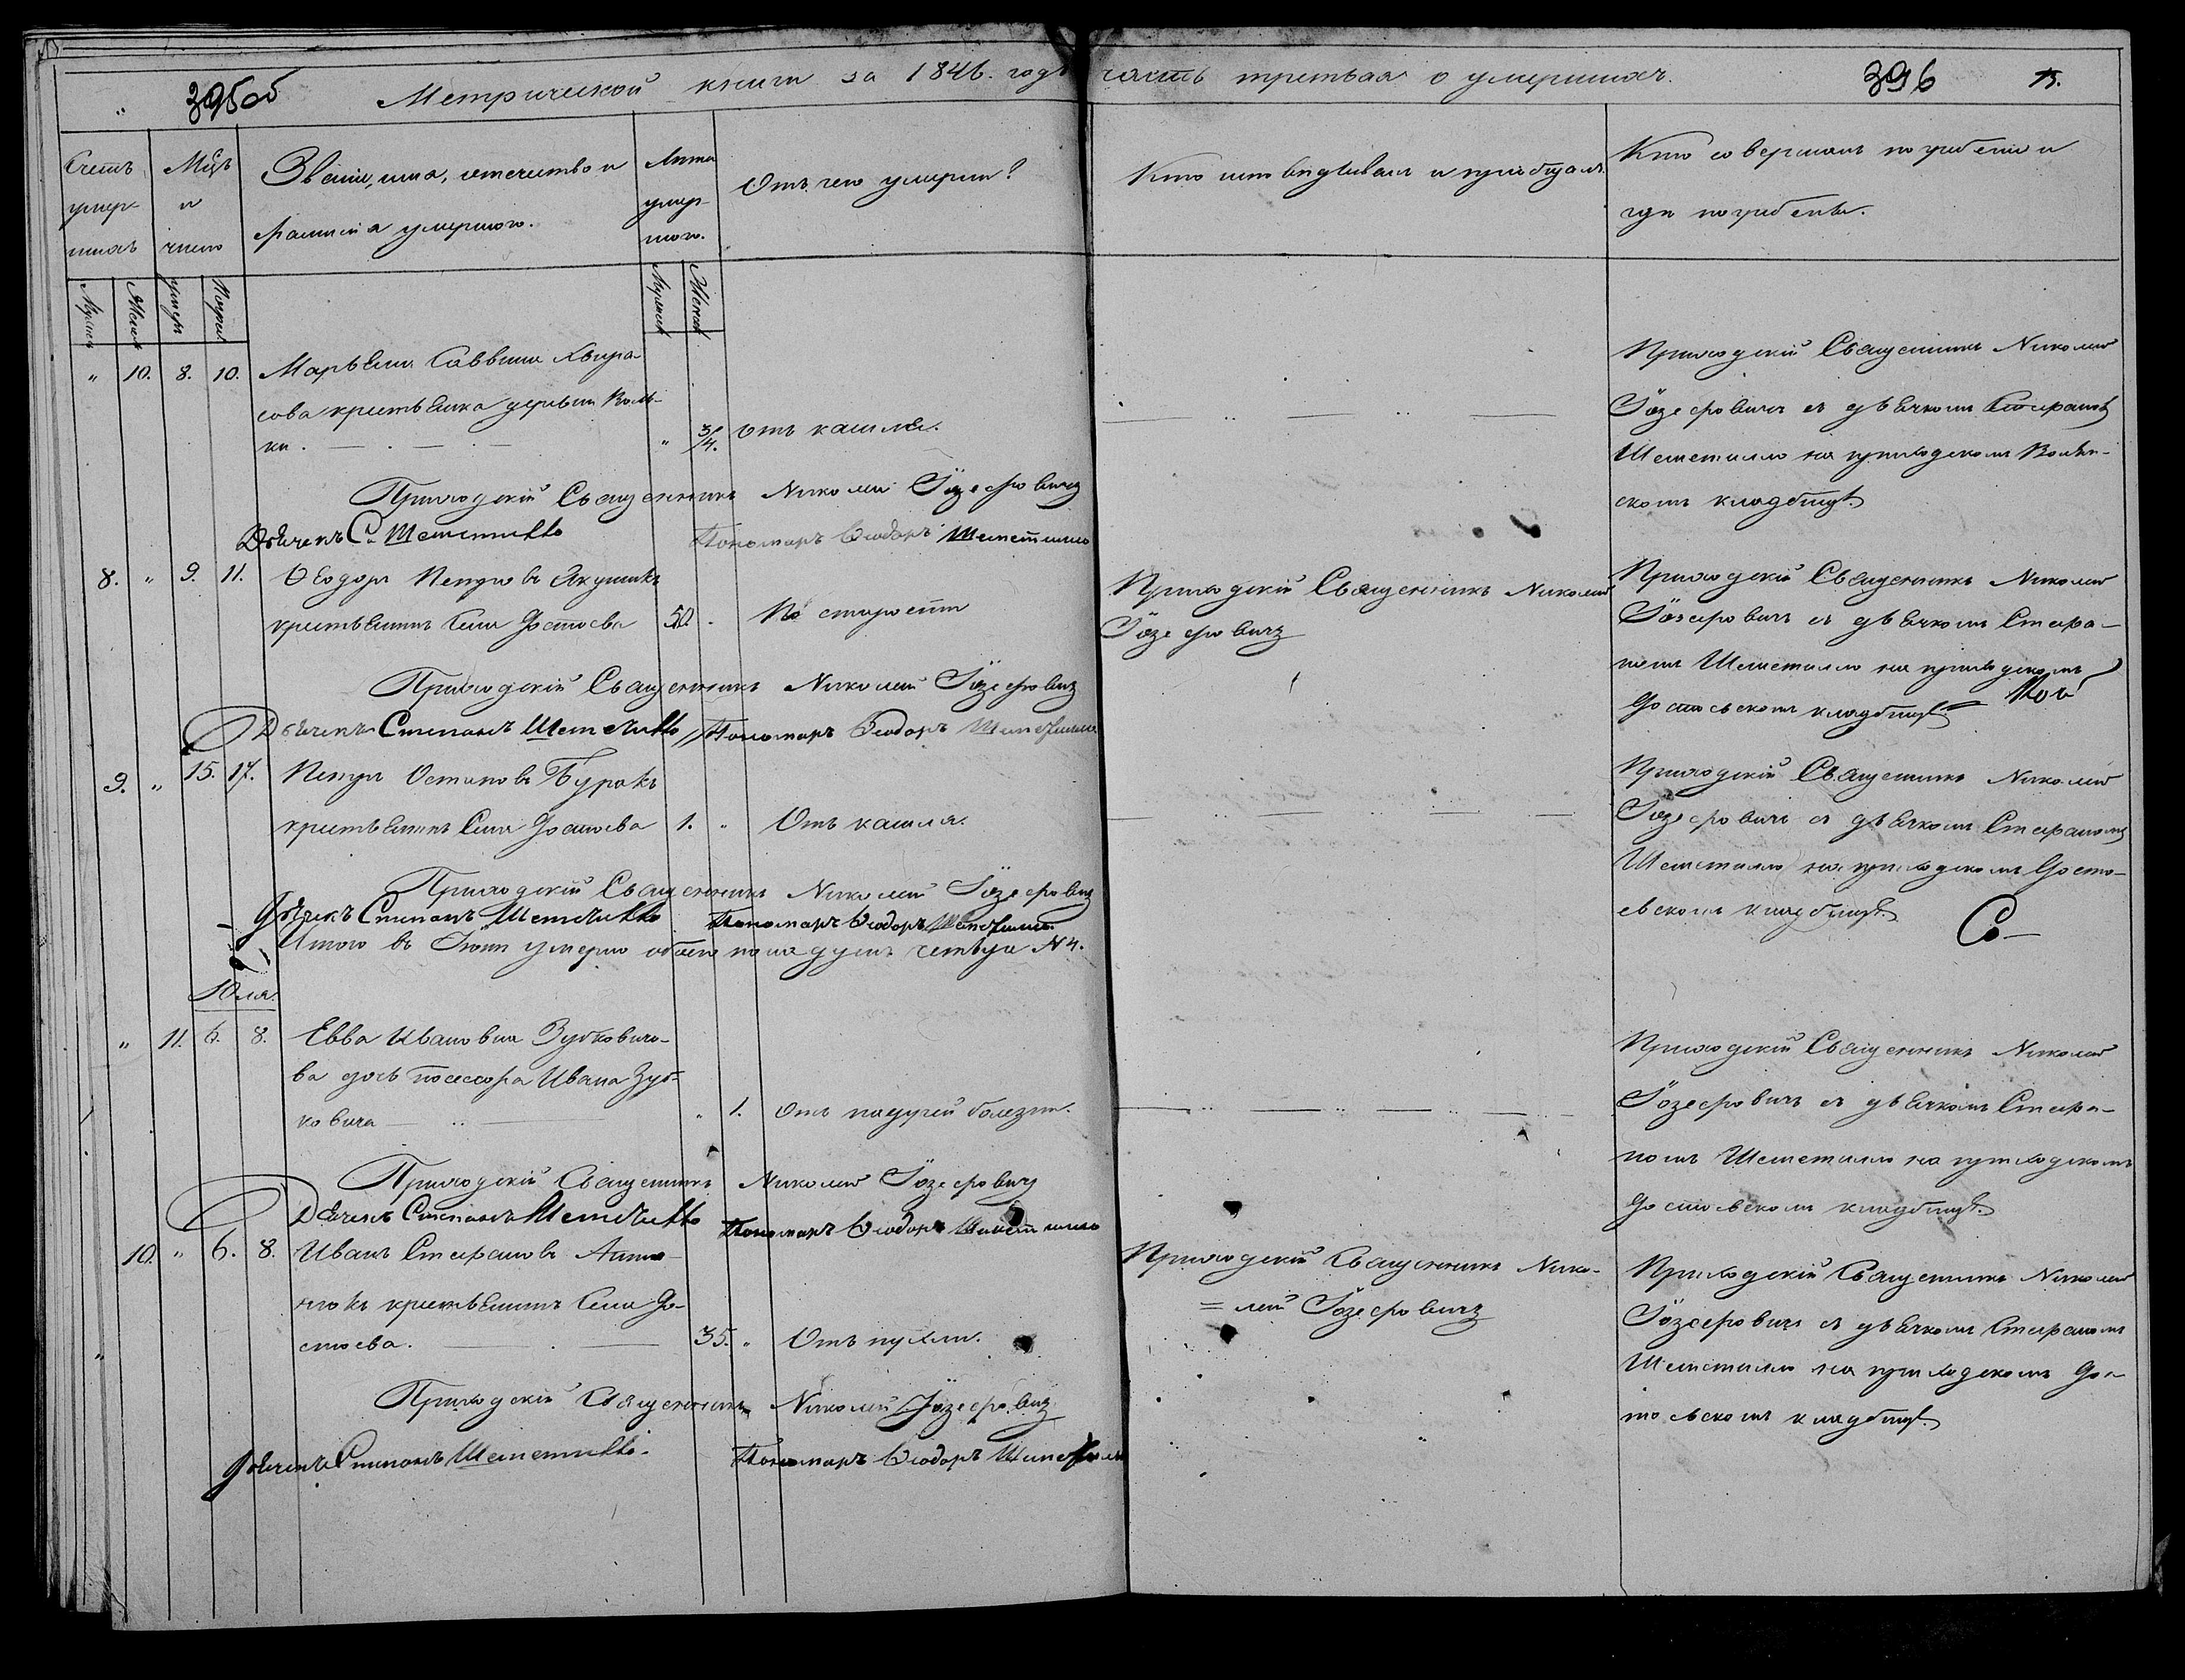 395об Метрической книги за 1846. годъ часть третьая о умершихъ. 396
Счетъ умер- шихъ
Мцъ и число
Званіе, имя, отечество и фамилія умершого.
Лѣта умер- шого.
Отъ чего умерли?
Кто исповѣдывалъ и пріобщалъ.
Кто совершалъ погребеніе и гдѣ погребены.
Мужск Женск умеръ Погреб Мужеск Женск
" 10. 8. 10. Марьяна Саввина
сова крестьянка деревни Воль-
ки. " 3/4. отъ кашля.
Приходскій Священникъ Николай
Іозефовичъ съ дьячкомъ Стефаномъ
Шеметилло на приходскомъ Воль-
скомъ кладбищѣ.
Приходскій Священникъ Николай Іозефовичъ
Дьячекъ С. Шеметилло Пономаръ Ѳеодоръ Шеметилло
8. " 9. 11. Ѳеодоръ Петровъ Якушикъ
крестьянинъ Села Достоева 50. По старости
Приходскій Священникъ Николай
Іозефовичъ
Приходскій Священникъ Николай
Іозефовичъ съ дьячкомъ Стефа-
номъ Шеметилло на приходскомъ
Достоевскомъ кладбищѣ
Приходскій Священникъ Николай Іозефовичъ
Дьячекъ Стефанъ Шеметилло Пономаръ Ѳеодоръ Шеметилло
9. " 15. 17. Петръ Остаповъ Буракъ
крестьянинъ Села Достоева 1. " Отъ кашля.
Приходскій Священникъ Николай
Іозефовичъ съ дьячкомъ Стефаномъ
Шеметилло на приходскомъ Досто-
евскомъ кладбищѣ.
Приходскій Священникъ Николай Іозефовичъ
Дьячекъ Стефанъ Шеметилло Пономаръ Ѳеодоръ Шеметилло
Итого въ Іюнѣ умерло обоего пола душъ четыре № 4.
Юля.
" 11. 6. 8. Евва Иванова Зубковичо-
ва дочь посессора Ивана Зуб-
ковича " 1. отъ падучей болезни.
Приходскій Священникъ Николай
Іозефовичъ съ дьячкомъ Стефа-
номъ Шеметилло на приходскомъ
Достоевскомъ кладбищѣ.
Приходскій Священникъ Николай Іозефовичъ
Дьячекъ Стефанъ Шеметилло Пономаръ Ѳеодоръ Шеметилло
10. " 6. 8. Иванъ Стефановъ
крестьянинъ Села До-
стоева. 35. " Отъ пухли.
Приходскій Священникъ Нико-
=лай Іозефовичъ
Приходскій Священникъ Николай
Іозефовичъ съ дьячкомъ Стефаномъ
Шеметилло на приходскомъ Дос-
тоевскомъ кладбищѣ.
Приходскій Священникъ Николай Іозефовичъ
Дьячекъ Стефанъ Шеметилло. Пономаръ Ѳеодоръ Шеметилло